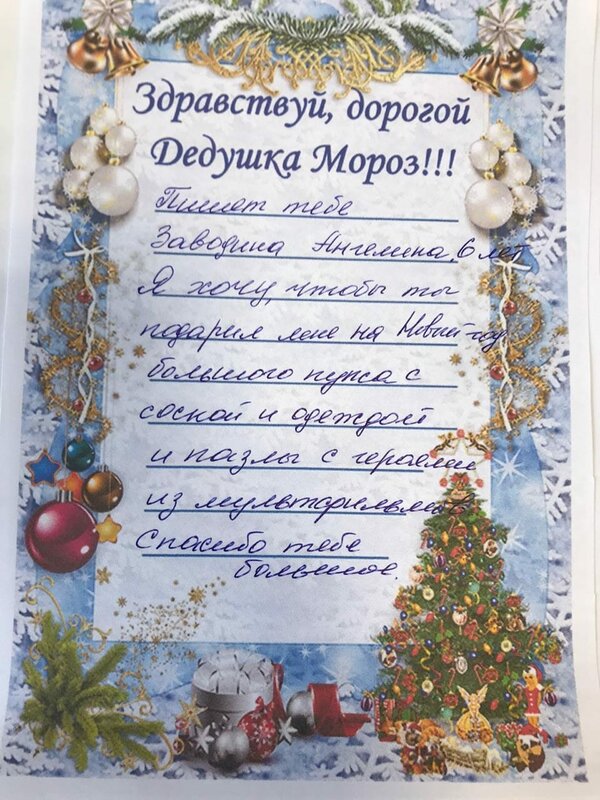 Здравствуй, дорогой
Дедушка Мороз!!!
Пишет тебе
Заводина Ангелина, 6 лет
Я хочу, чтобы ты
подарил мне на Новый год
большого пупса с
соской и одеждой
и пазлы с героями
из мультфильмов
Спасибо тебе
большое.